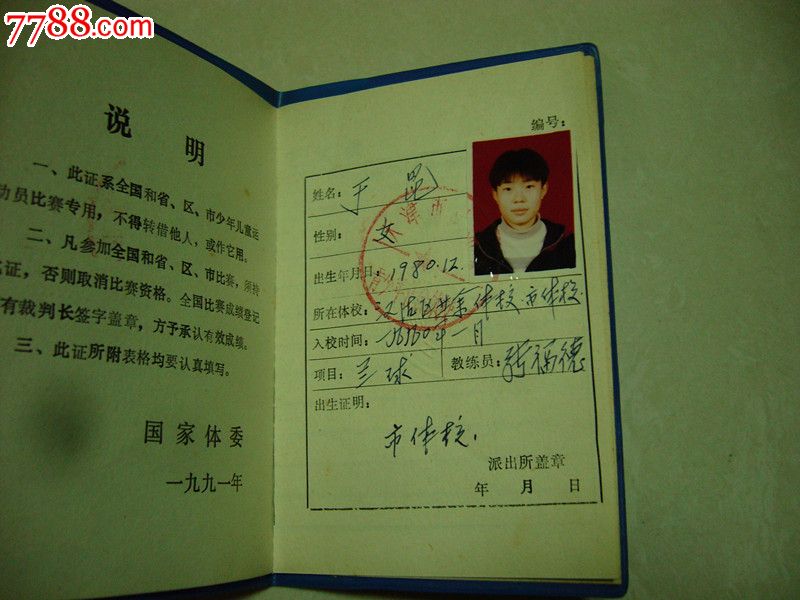 7788.com
说明
一、此证系全国和省、区、市少年儿童运
动员比赛专用，不得转借他人，或作它用。
二、凡参加全国和省、区、市比赛，须持
此证，否则取消比赛资格。全国比赛成绩登记
有裁判长签字盖章，方予承认有效成绩。
三、此证所附表格均要认真填写。
国家体委
一九九一年
编号：
姓名：于
性别：女
出生年月日：1980.12.
所在体校：业余体校.市体校.
入校时间：年一月
项目：兰球
教练员：福德
出生证明：
市体校.
派出所盖章
年 月 日